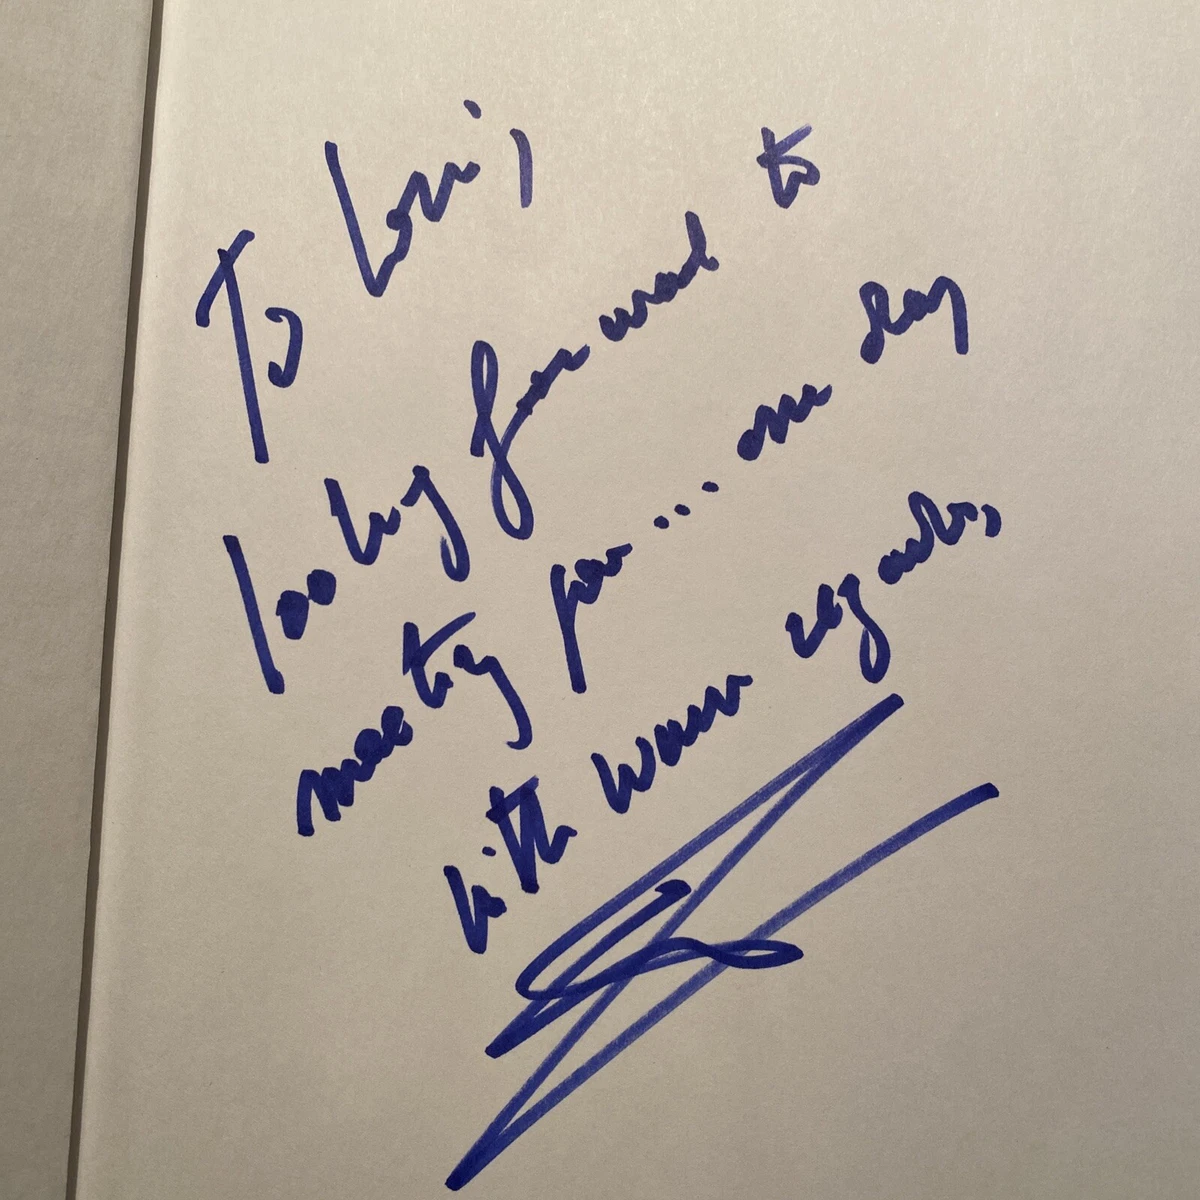 To Louis,
looking forward to
meeting you... one day
with warm regards,